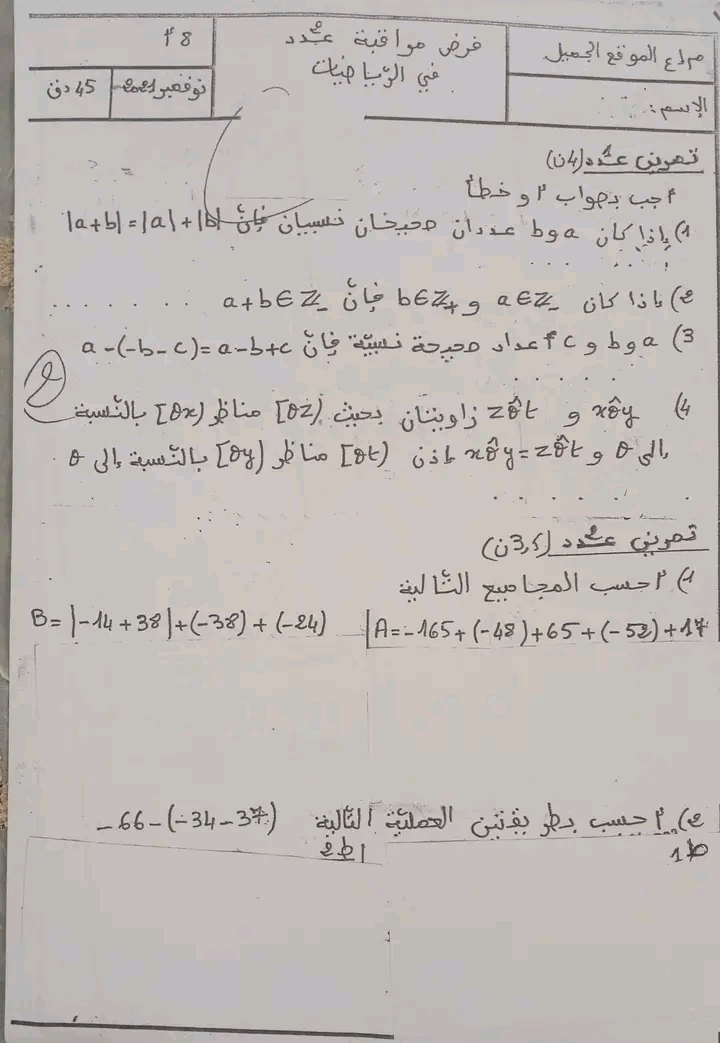 م.إع الموقع الجميل
فرض مراقبة عـ2ـدد
في الرّياضيات
8 أ
نوفمبر 2021
45 دق
الإسم:
تمرين عـ1ـدد (4ن)
أجب بصواب أو خطأ
1) إذا كان a و b عددان صحيحان نسبيان فإنّ |a+b|=|a|+|b|
2) إذا كان a∈ℤ₋ و b∈ℤ₊ فإنّ a+b∈ℤ₋ . . . . . . . .
3) a و b و c أعداد صحيحة نسبيّة فإنّ a-(-b-c)=a-b+c
4) xÔy و zÔt زاويتان بحيث [Oz) مناظر [Ox) بالنّسبة
إلى O و xÔy=zÔt إذن [Ot) مناظر [Oy) بالنّسبة إلى O
تمرين عـ2ـدد (3,5ن)
1) أحسب المجاميع التّالية
A=-165+(-48)+65+(-52)+17
B=|-14+38|+(-38)+(-24)
2) أحسب بطريقتين العمليّة التّالية -66-(-34-37)
ط1
ط2